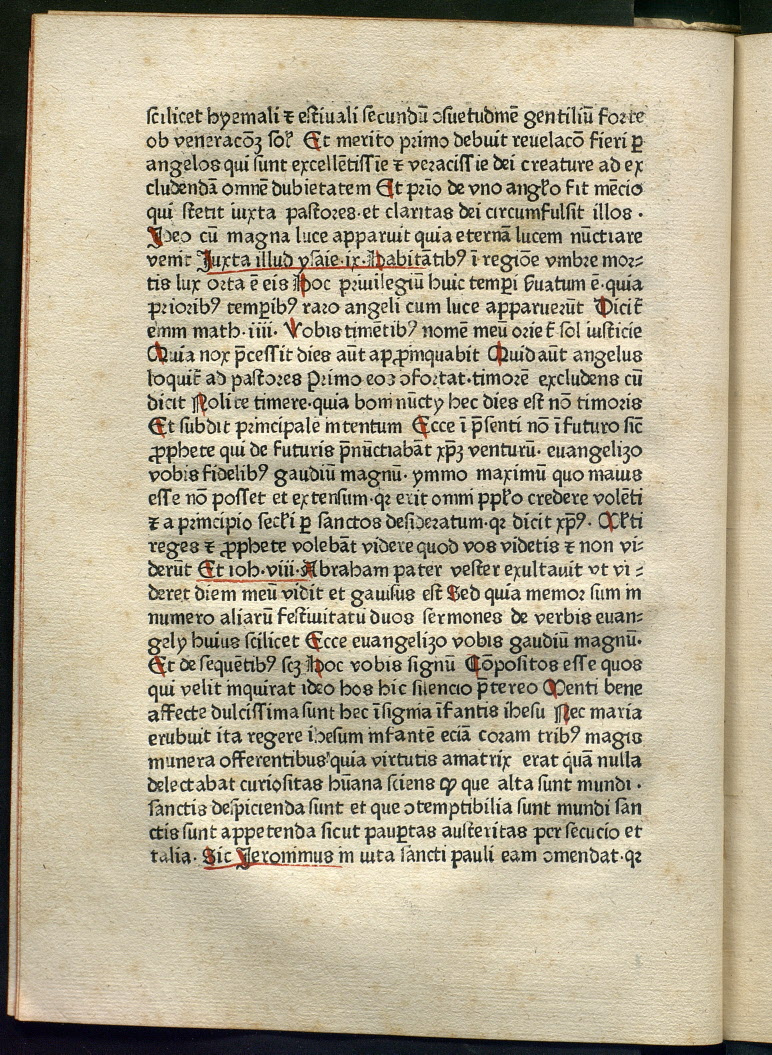 scilicet hyemali ⁊ estiuali secundū ꝯsuetudinē gentiliū forte
ob veneracōꝫ sol' Et merito primo debuit reuelacō fieri ꝑ
angelos qui sunt excellētissīe ⁊ veracissīe dei creature ad ex
cludendā omnē dubietatem Et prīo de vno angl'o fit mēcio
qui stetit iuxta pastores·et claritas dei circumfulsit illos ·
Ideo cū magna luce apparuit quia eternā lucem nūctiare
venit Juxta illud ysaie·ix·Habitātibꝰ ī regiōe vmbre mor⸗
tis lux orta ē eis Hoc priuilegiū huic temꝑi ẜuatum ē·quia
prioribꝰ temꝑibꝰ raro angeli cum luce apparuerūt Dicit̄
enim math·iiii· Vobis timētibꝰ nomē meū oriet̄ sol iusticie
Quia nox p̄cessit dies aūt apꝓpinquabit Quid aūt angelus
loquit̄ ad pastores Primo eos ꝯfortat·timorē excludens cū
dicit Nolite timere·quia boni nūcty hec dies est nō timoris
Et subdit principale intentum Ecce ī p̄senti nō ī futuro sic̄
ꝓphete qui de futuris p̄nūctiabāt xp̄ꝫ venturū· euangelizo
vobis fidelibꝰ gaudiū magnū· ymmo maximū quo maius
esse nō posset et extensum·qꝛ erit omni ppl'o credere volēti
⁊ a principio secl'i ꝑ sanctos desideratum·qꝛ dicit xp̄ꝰ· Ml'ti
reges ⁊ ꝓphete volebāt videre quod vos videtis ⁊ non vi⸗
derūt Et ioh·viii·Abraham pater vester exultauit vt vi⸗
deret diem meū vidit et gauisus est Sed quia memor sum in
numero aliarū festiuitatū duos sermones de verbis euan⸗
gely huius scilicet Ecce euangelizo vobis gaudiū magnū·
Et de sequētibꝰ scꝫ Hoc vobis signū Cōpositos esse quos
qui velit inquirat ideo hos hic silencio p̄tereo Menti bene
affecte dulcissima sunt hec īsignia īfantis ihesu Nec maria
erubuit ita regere ihesum infantē eciā coram tribꝰ magis
munera offerentibus'quia virtutis amatrix erat quā nulla
delectabat curiositas hūana sciens ꝙ que alta sunt mundi ·
sanctis despicienda sunt et que ꝯtemptibilia sunt mundi san
ctis sunt appetenda sicut pauꝑtas austeritas persecucio et
talia· Sic Jeronimus in uita sancti pauli eam ꝯmendat·qꝛ